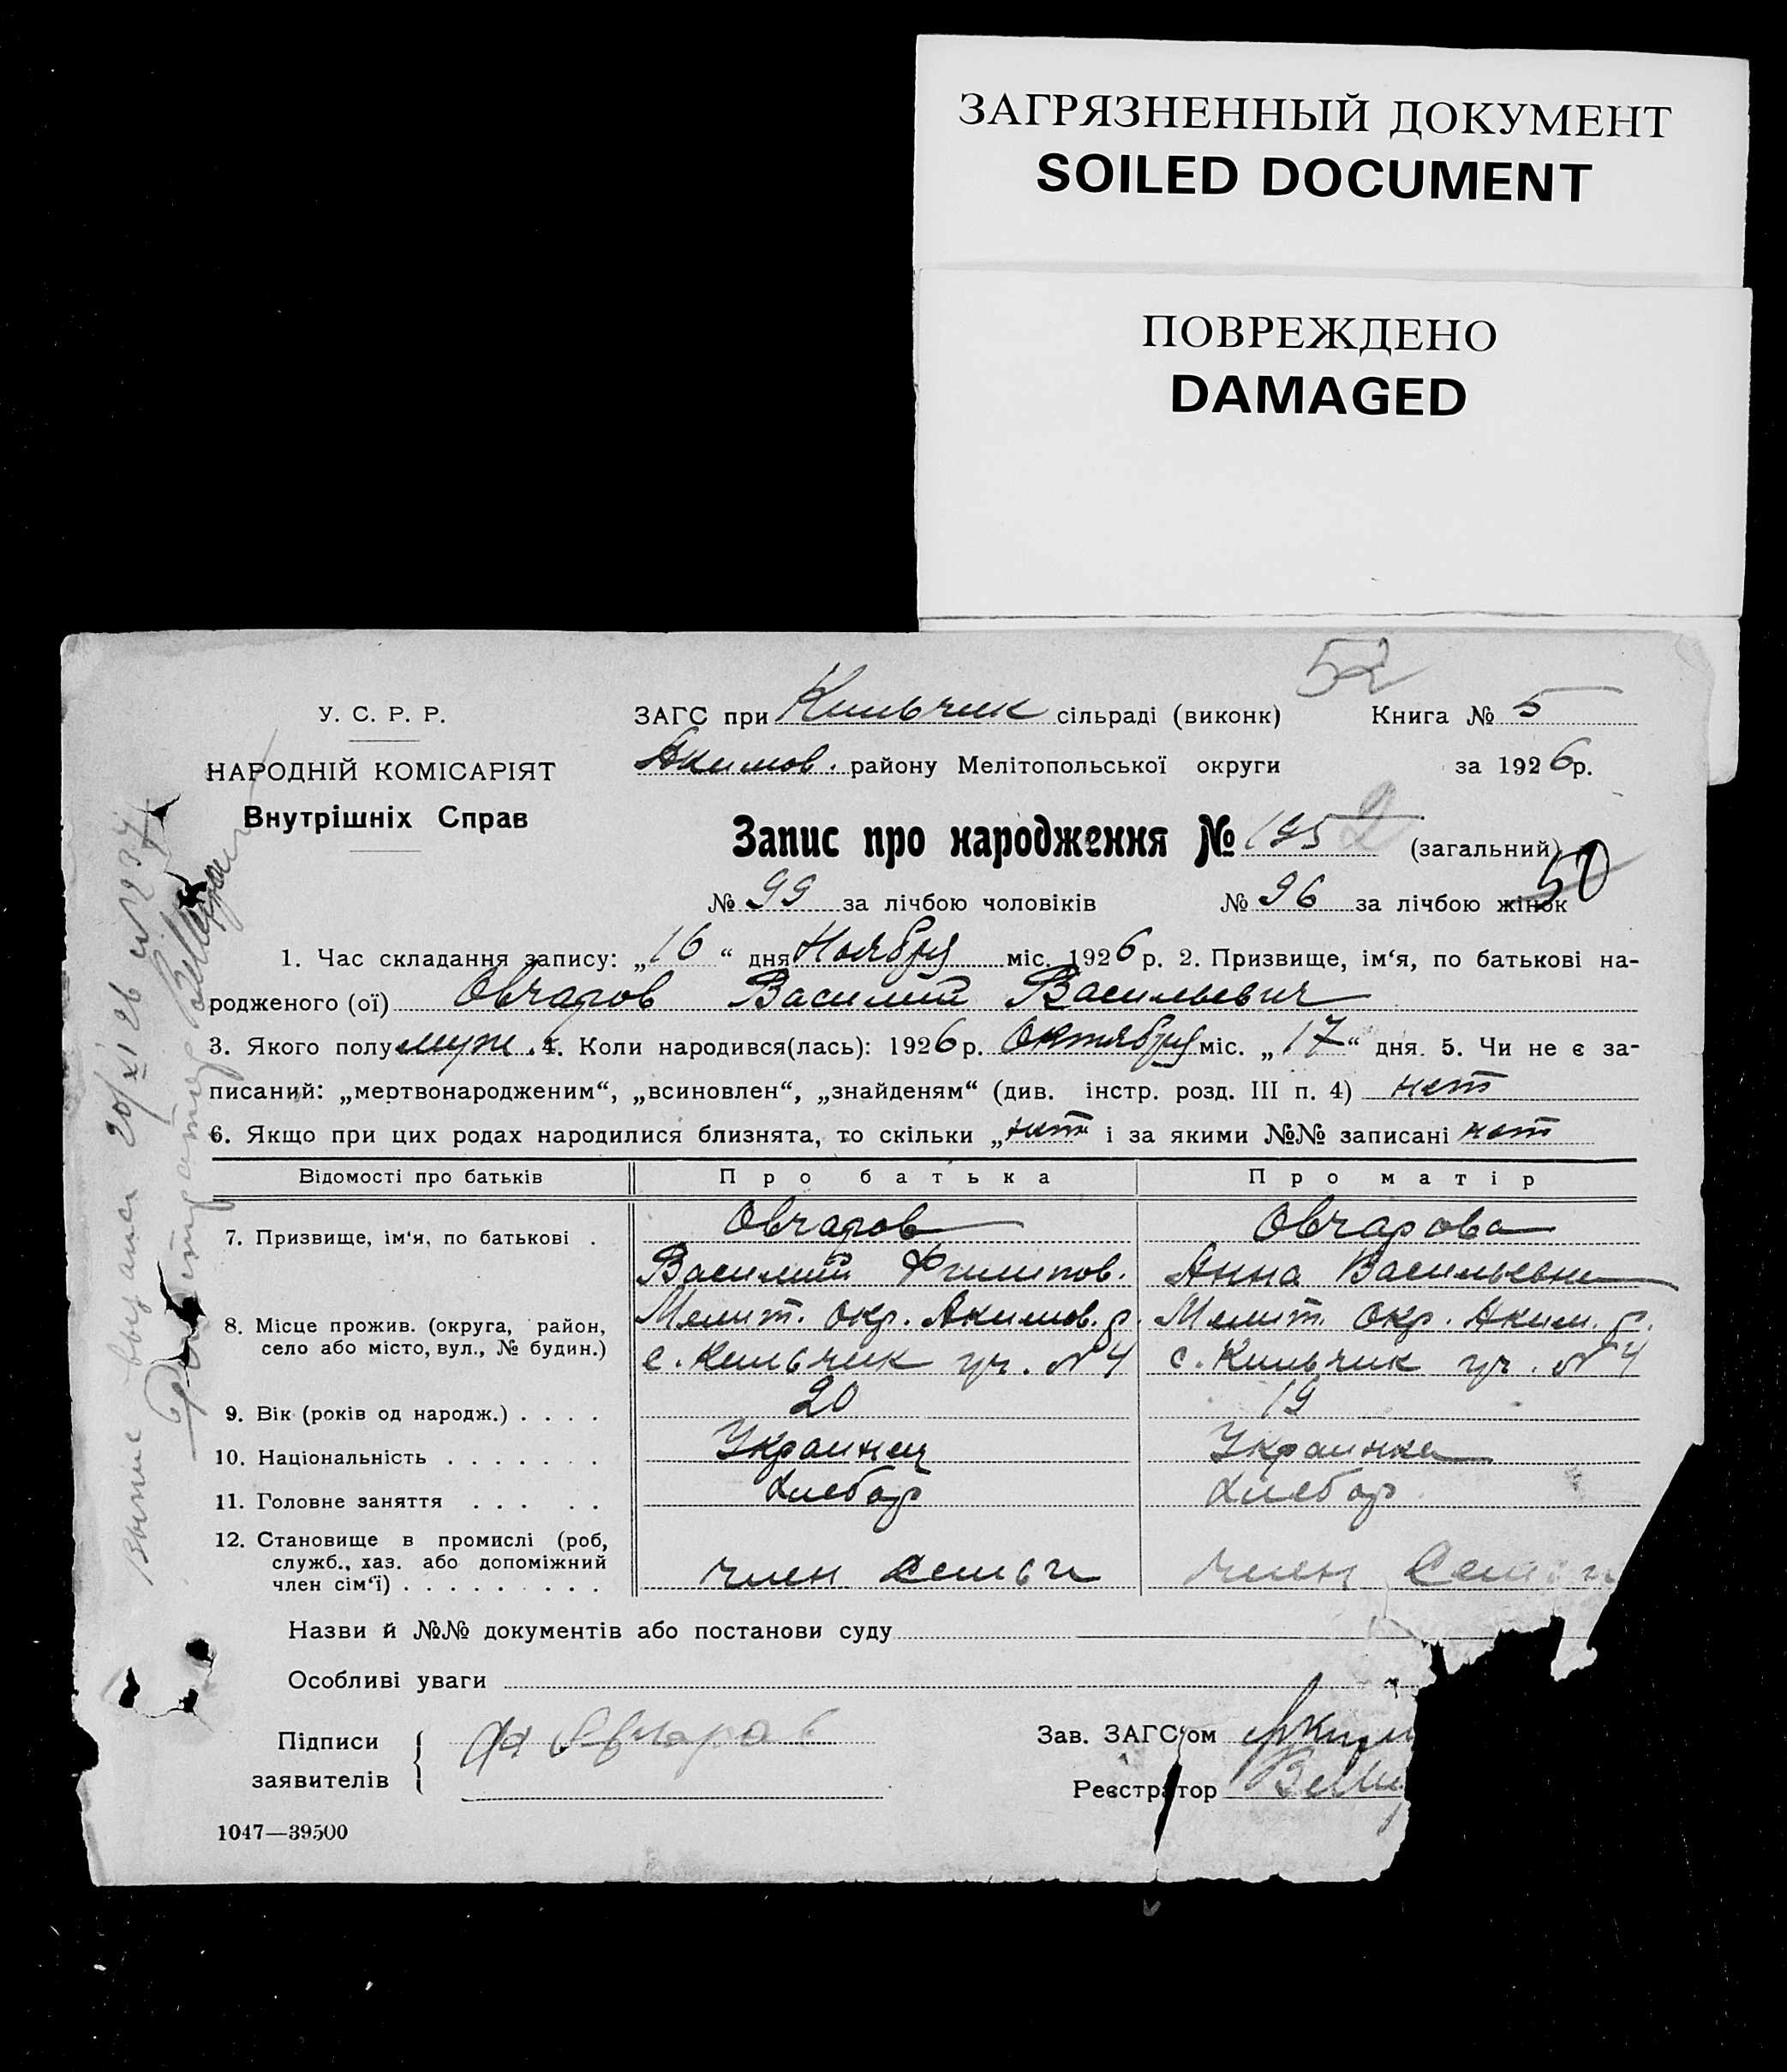 ЗАГРЯЗНЕННЫЙ ДОКУМЕНТ
SOILED DOCUMENT
ПОВРЕЖДЕНО
DAMAGED
52
У. С. Р. Р.
НАРОДНІЙ КОМІСАРІЯТ
Внутрішніх Справ
ЗАГС при Кильчик сільраді (виконк) Книга № 5
Акимов. району Мелітопольської округи за 1926р.
Запис про народження № 195 2 (загальний)
50
№ 99 за лічбою чоловіків № 96 за лічбою жінок
1. Час складання запису: „16“ дня Ноября міс. 1926 р. 2. Призвище, ім‘я, по батькові на-
родженого (ої) Овчаров Василий Васильевич
3. Якого полу муж. 4. Коли народився(лась): 1926 р. Октября міс. „17“ дня. 5. Чи не є за-
писаний: „мертвонародженим“, „всиновлен“, „знайденям“ (див. інстр. розд. III п. 4) нет
6. Якщо при цих родах народилися близнята, то скільки „нет“ і за якими №№ записані нет
Відомості про батьків Про батька Про матір
7. Призвище, ім‘я, по батькові . Овчаров Овчарова
Василий Филипов. Анна Васильевна
8. Місце прожив. (округа, район, село або місто, вул., № будин.) Мелит. Окр. Акимов. р. Мелит. Окр. Аким. р.
с. Кильчик уч. №4 с. Кильчик уч. №4
9. Вік (років од народж.) . . . . 20 19
10. Національність . . . . . . . Украинец Украинка
11. Головне заняття . . . . . Хлебор Хлебор
12. Становище в промислі (роб,
служб., хаз. або допоміжний
член сім‘ї) . . . . . . . . . член семьи член семьи
Назви й №№ документів або постанови суду
Особливі уваги
Підписи заявителів Овчаров
Зав. ЗАГС‘ом
Реєстратор
1047—39500
Выпис выдана 20/XI 26 №237